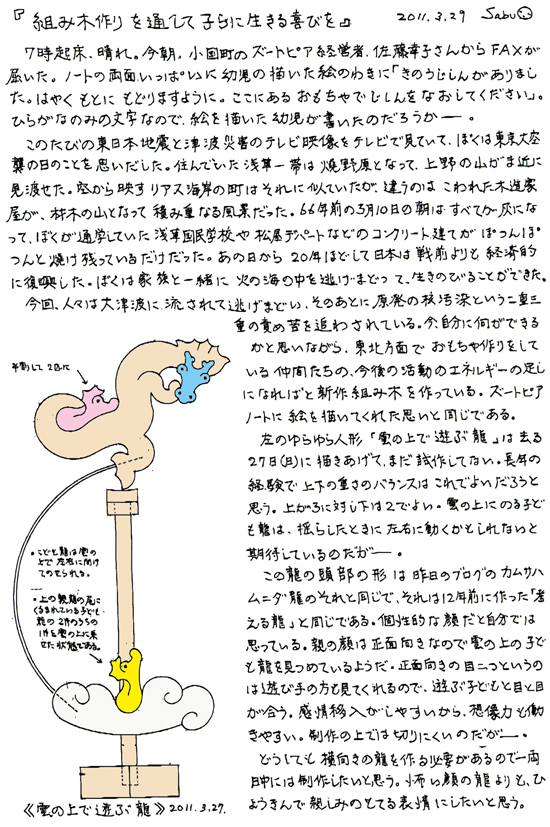 『組み木作りを通して子らに生きる喜びを』 2011.3.29 Sabu
7時起床、晴れ。今朝、小国町のズートピア経営者、佐藤幸子さんからFAXが
届いた。ノートの両面いっぱいに幼児の描いた絵のわきに「きのうじしんがありまし
た。はやくもとにもどりますように。ここにあるおもちゃでじしんをなおしてください」。
ひらがなのみの文字なので、絵を描いた幼児が書いたのだろうかー。
このたびの東日本地震と津波災害のテレビ映像をテレビで見ていて、ぼくは東京大空
襲の日のことを思いだした。住んでいた浅草一帯は焼野原となって、上野の山がま近に
見渡せた。空から映すリアス海岸の町はそれに似ていたが、違うのはこわれた木造家
屋が、材木の山となって積み重なる風景だった。66年前の3月10日の朝はすべてが灰にな
って、ぼくが通学していた浅草国民学校や松屋デパートなどのコンクリート建てがぽつんぽ
つんと焼け残っているだけだった。あの日から20年ほどして日本は戦前よりも経済的
に復興した。ぼくは家族と一緒に火の海の中を逃げまどって、生きのびることができた。
今回、人々は大津波に流されて逃げまどい、そのあとに原発の放活染という二重三
重の責め苦を追わされている。今自分に何ができる
かと思いながら、東北方面でおもちゃ作りをして
いる仲間たちの、今後の活動のエネルギーの足し
になればと新作組み木を作っている。ズートピア
ノートに絵を描いてくれた思いと同じである。
左のゆらゆら人形「雲の上で遊ぶ龍」は去る
27日(日)に描きあげて、まだ試作してない。長年の
経験で上下の重さのバランスはこれでよいだろうと
思う。上が3に対し下は2でよい。雲の上にのる子ど
も龍は、揺らしたときに左右に動くかもしれないと
期待しているのだがー。
この龍の頭部の形は昨日のブログのカムサハ
ムニダ龍のそれと同じで、それは12年前に作った「考
える龍」と同じである。個性的な顔だと自分では
思っている。親の顔は正面向きなので雲の上の子ど
も龍を見つめているようだ。正面向きの目二つというの
は遊び手の方も見てくれるので、遊ぶ子どもと目と目
が合う。感情移入がしやすいから、想像力も働
きやすい。制作の上では切りにくいのだがー。
どうしても横向きの龍を作る必要があるので一両
日中には制作したいと思う。怖い顔の龍よりも、ひ
ょうきんで親しみのもてる表情にしたいと思う。
半割して2匹に
・こども龍は雲の
上で左右に向け
てのせられる。
・上の親龍の尾に
くるまれている子ども
龍の2件のうちの
1件を雲の上に乗
せた状態である。
《雲の上で遊ぶ龍》2011.3.27.